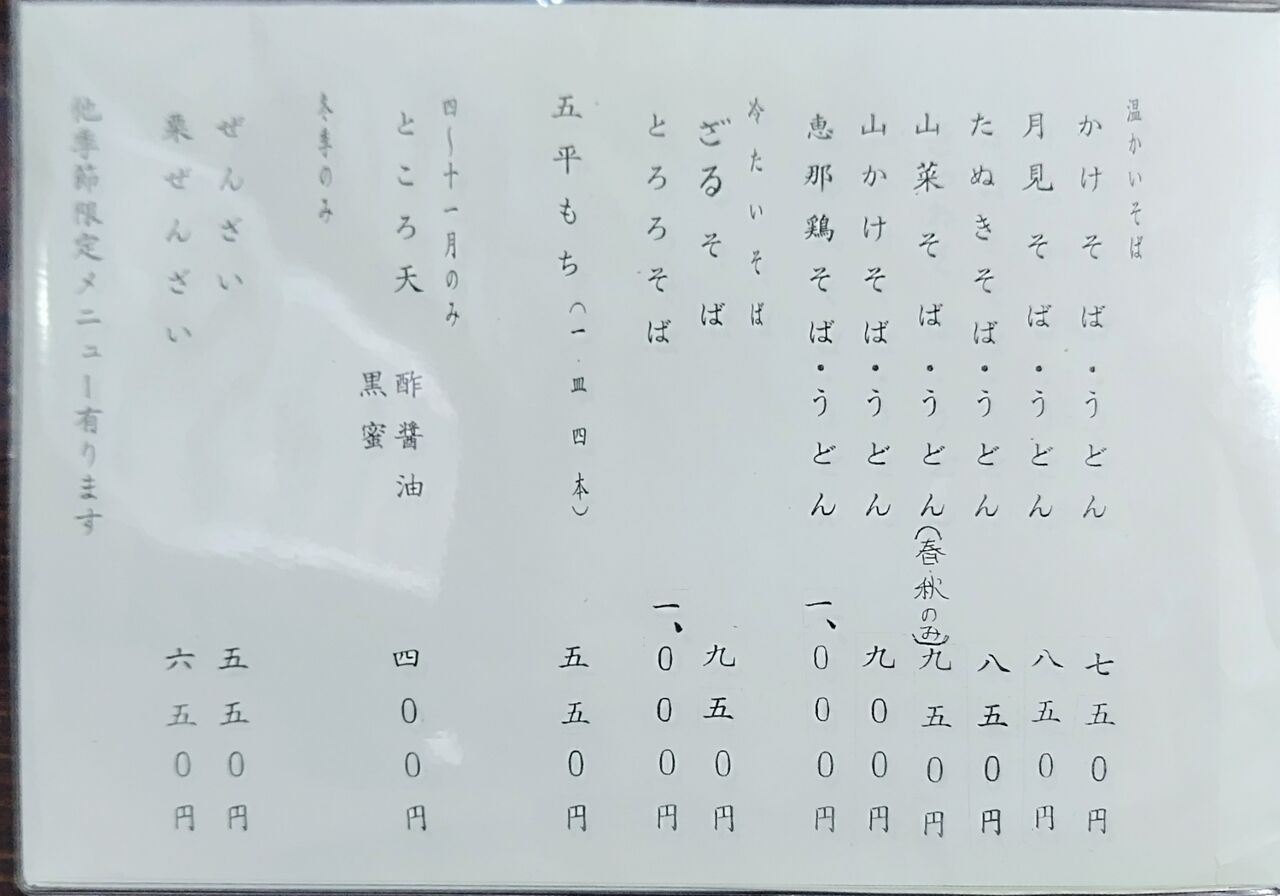 温かいそば
かけそば・うどん 七五〇円
月見そば・うどん 八五〇円
たぬきそば・うどん 八五〇円
山菜そば・うどん(春・秋のみ) 九五〇円
山かけそば・うどん 九〇〇円
恵那鶏そば・うどん 一、〇〇〇円
冷たいそば
ざるそば 九五〇円
とろろそば 一、〇〇〇円
五平もち(一皿四本) 五五〇円
四~十一月のみ
ところ天 酢醬油 四〇〇円
黒蜜
冬季のみ
ぜんざい 五五〇円
栗ぜんざい 六五〇円
他季節限定メニュー有ります